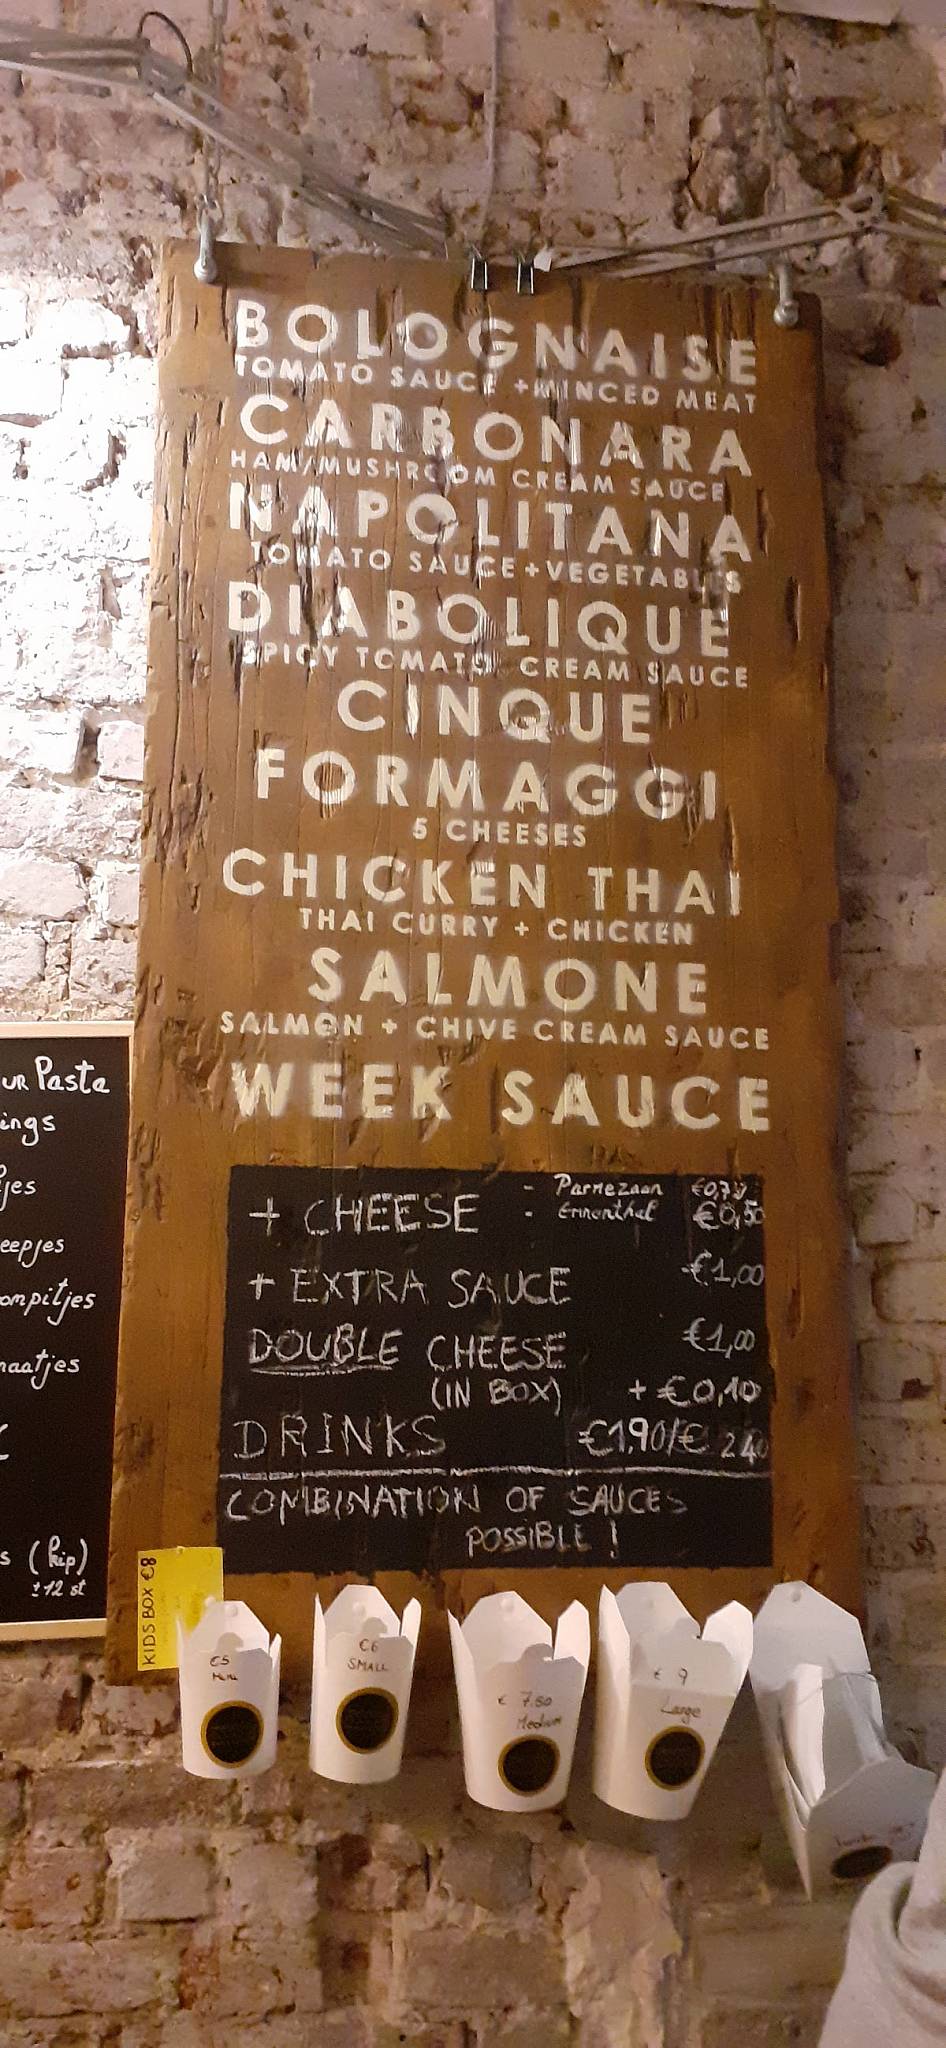 BOLOGNAISE
TOMATO SAUCE + MINCED MEAT
CARBONARA
HAM/MUSHROOM CREAM SAUCE
NAPOLITANA
TOMATO SAUCE + VEGETABLES
DIABOLIQUE
SPICY TOMATO CREAM SAUCE
CINQUE
FORMAGGI
5 CHEESES
CHICKEN THAI
THAI CURRY + CHICKEN
SALMONE
SALMON + CHIVE CREAM SAUCE
WEEK SAUCE
+ CHEESE - Parmezaan
- Emmenthal €0,50
+ EXTRA SAUCE €1,00
DOUBLE CHEESE €1,00
(IN BOX) + €0,10
DRINKS €1,90/€ 2,40
COMBINATION OF SAUCES
POSSIBLE !
UR Pasta
ings
jes
eepjes
ompitjes
naatjes
s (kip)
±12 st
KIDSBOX €8
€5
€6
SMALL
€ 7.50
Medium
€ 9
Large